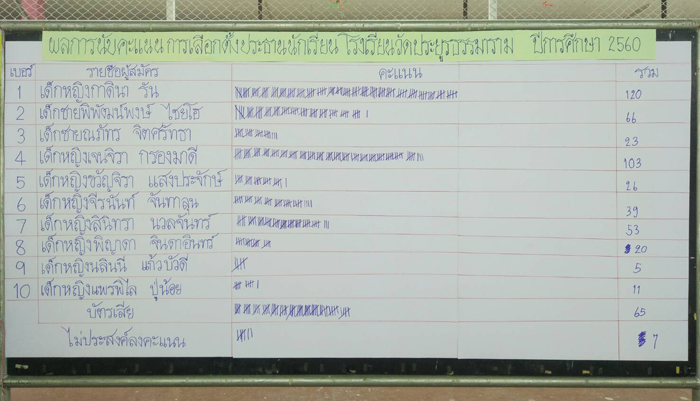 ผลการนับคะแนน การเลือกตั้งประธานนักเรียน โรงเรียนวัดประยูรธรรมาราม ปีการศึกษา 2560
เบอร์ รายชื่อผู้สมัคร คะแนน รวม
1 เด็กหญิงกาตินา รัน 120
2 เด็กชายพิพัฒน์พงษ์ ไชยโอ 66
3 เด็กชายณภัทร จิตศรัทธา 23
4 เด็กหญิงเจนจิรา กรองมาดี 103
5 เด็กหญิงขวัญจิรา แสงประจักษ์ 26
6 เด็กหญิงจีรนันท์ จันทาลุน 39
7 เด็กหญิงสินิทรา นวลจันทร์ 53
8 เด็กหญิงพิญาดา จินดาอินทร์ 20
9 เด็กหญิงนลินนี แก้วบัวดี 5
10 เด็กหญิงแพรพิไล ปุ่น้อย 11
บัตรเสีย 65
ไม่ประสงค์ลงคะแนน 7